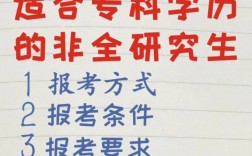 适合专科学历
的非全研究生
1 报考方式
2 报考条件
3 报考要求